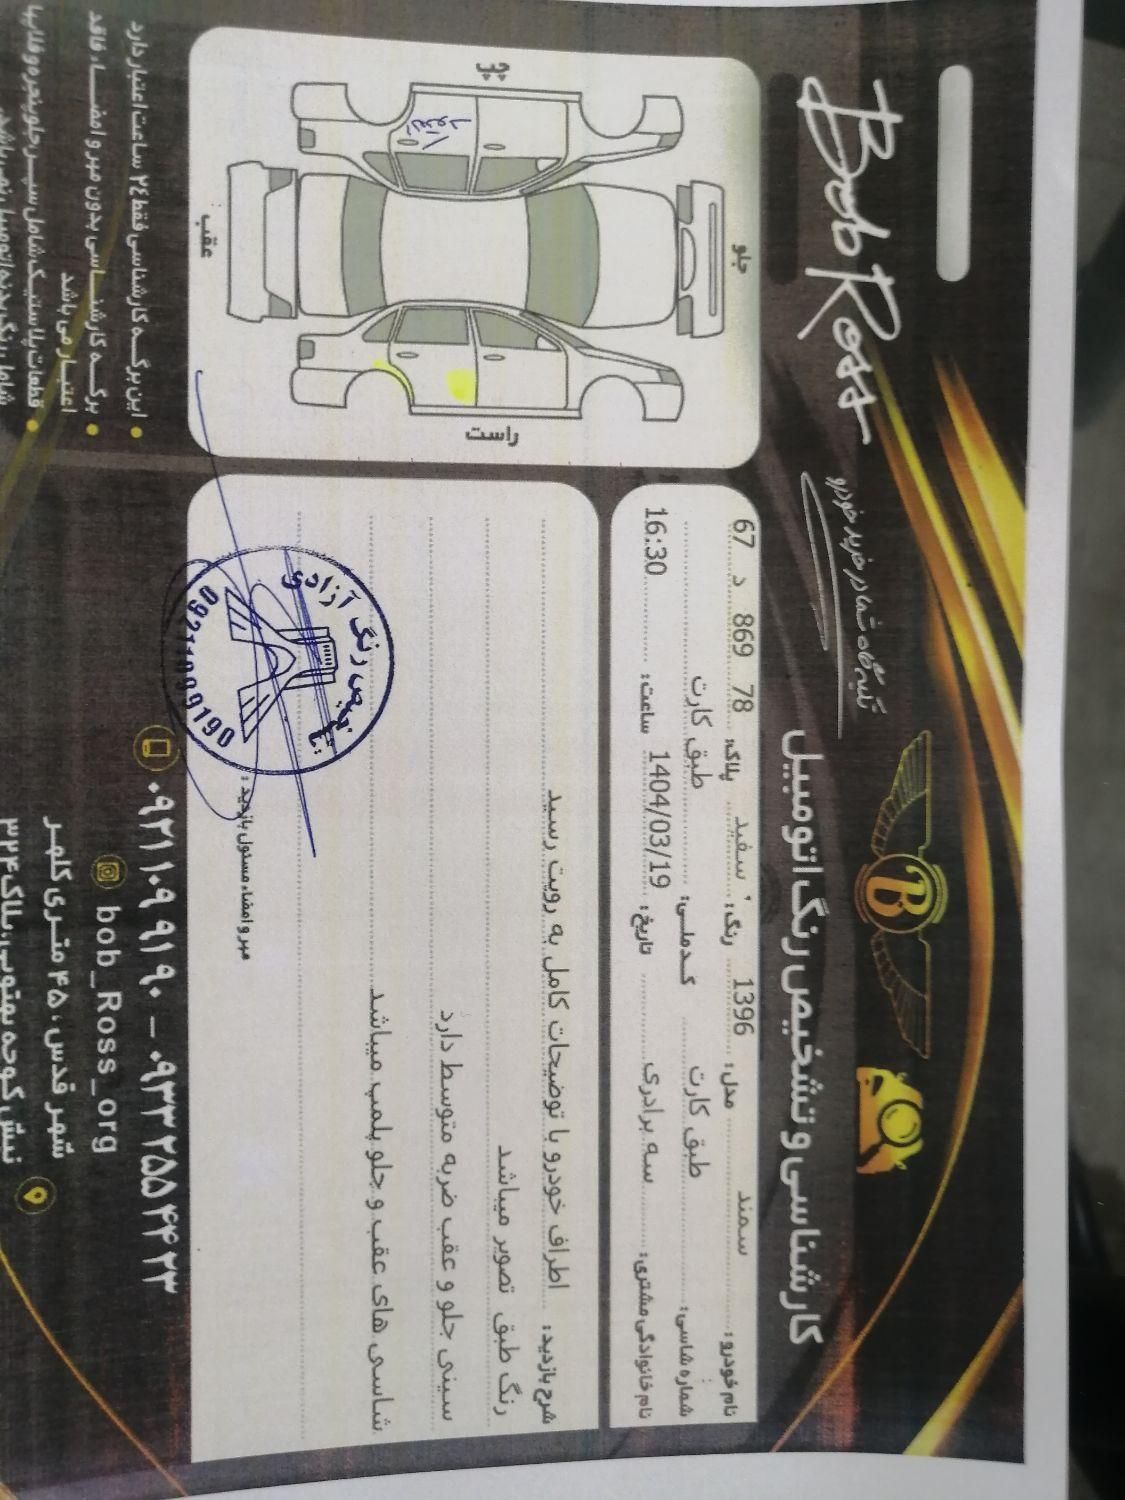 Bob Ross
تکیه گاه شما در خرید خودرو
B
کارشناسی و تشخیص رنگ اتومبیل
نام خودرو: سمند مدل: 1396 رنگ: سفید پلاک: 67 د 869 78
شماره شاسی: طبق کارت کد ملی: طبق کارت
نام خانوادگی مشتری: سه برادری تاریخ: 1404/03/19 ساعت: 16:30
جلو
چپ
راست
عقب
شرح بازدید: اطراف خودرو با توضیحات کامل به رویت رسید
رنگ طبق تصویر میباشد
سینی جلو و عقب ضربه متوسط دارد
شاسی های عقب و جلو پلمپ میباشد
مهر و امضاء مسئول بازدید:
تشخیص رنگ آزادی
09211099190
این برگه کارشناسی فقط ۲۴ ساعت اعتبار دارد
برگه کارشناسی بدون مهر و امضاء فاقد
اعتبار می باشد
قطعات پلاستیک شامل سپر جلو پنجره و قالپاق
۰۹۲۱۱۰۹۹۱۹۰ - ۰۹۳۳۲۵۵۴۴۲۳
bob_Ross_org
شهر قدس، ۴۵ متری کلهر
نبش کوچه بهنوب، پلاک ۳۲۴